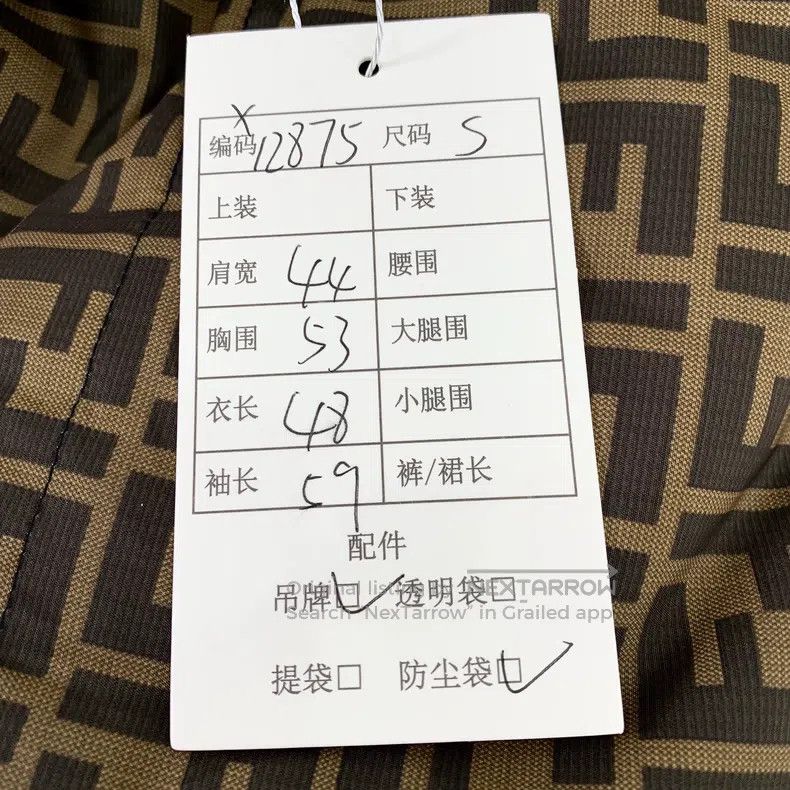 X
编码 12875 尺码 S
上装 下装
肩宽 44 腰围
胸围 53 大腿围
衣长 48 小腿围
袖长 59 裤/裙长
配件
吊牌☑ 透明袋☐
Original listing NEXTARROW
Search "NexTarrow" in Grailed app
提袋☐ 防尘袋☑